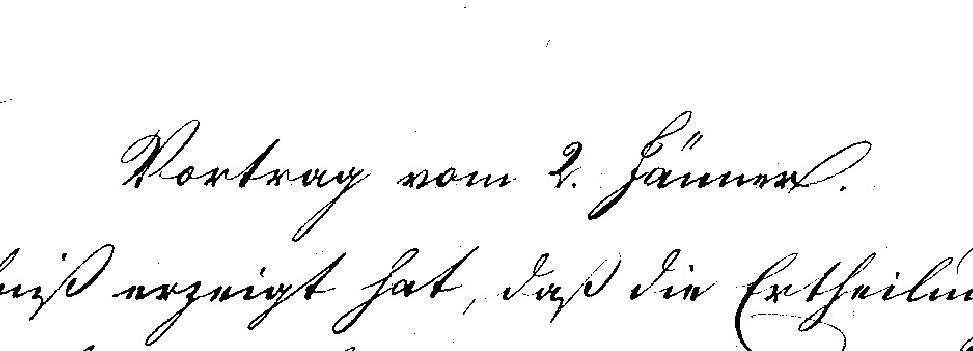 Vortrag vom 2. Jänner.
niß erzeigt hat, daß die Ertheilun